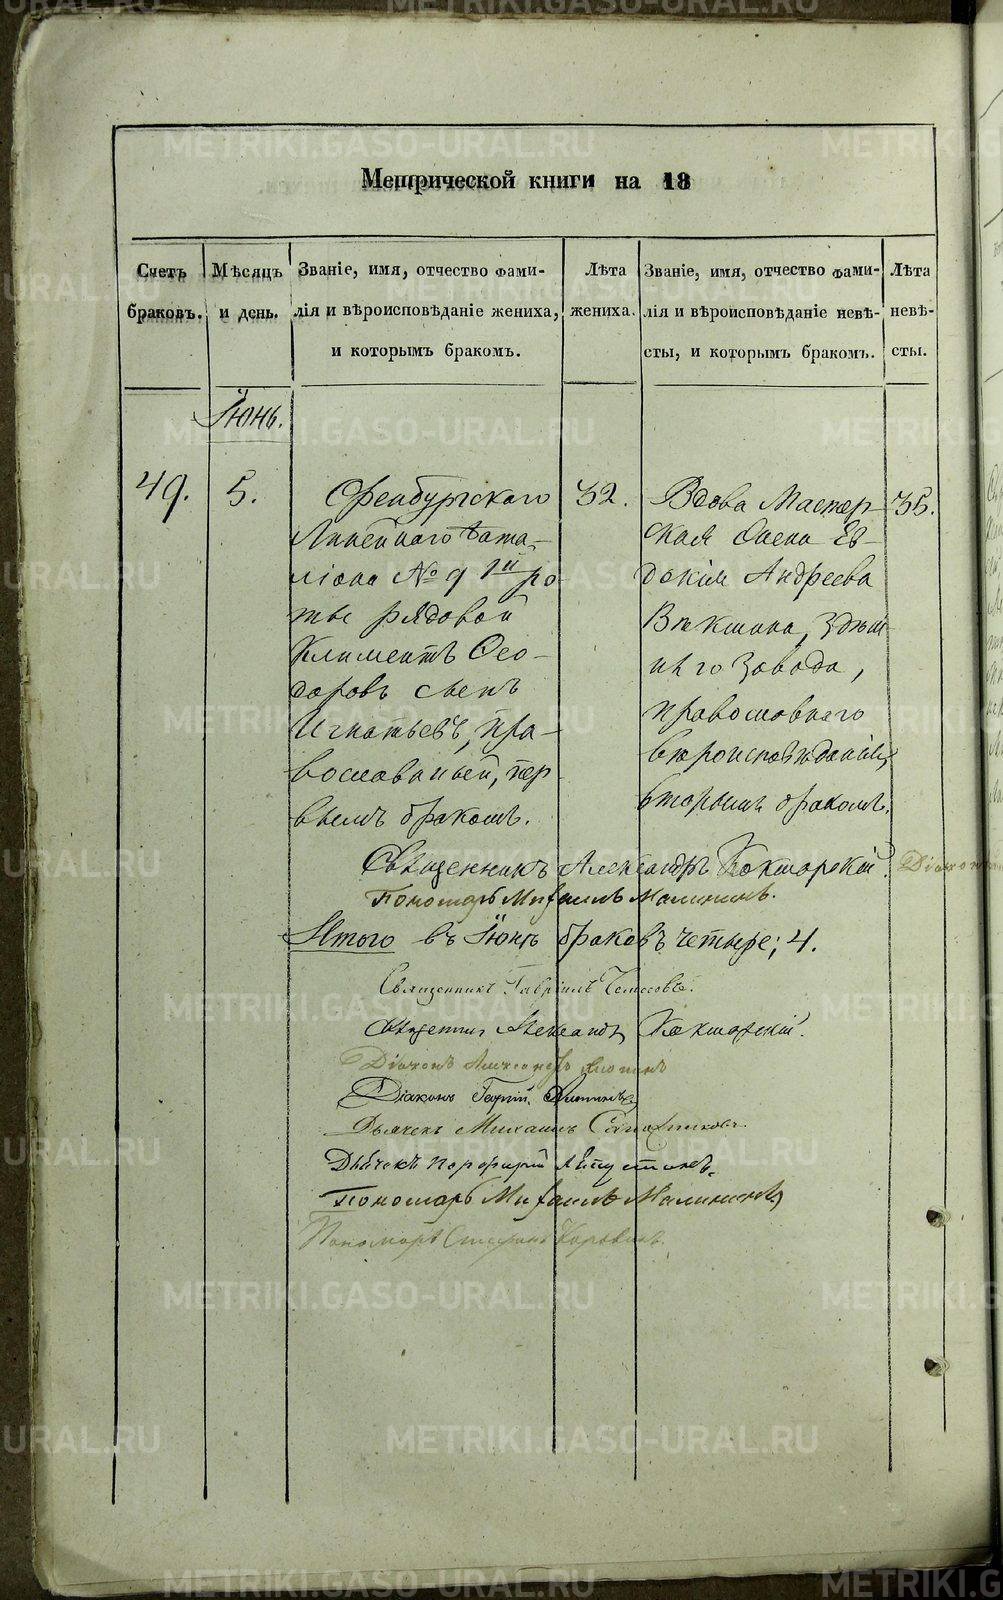 METRIKI.GASO-URAL.RU
Метрической книги на 18
Счетъ браковъ.
Мѣсяцъ и день.
Званіе, имя, отчество фами-
лія и вѣроисповѣданіе жениха,
и которымъ бракомъ.
Лѣта
жениха.
Званіе, имя, отчество фами-
лія и вѣроисповѣданіе невѣ-
сты, и которымъ бракомъ.
Лѣта
невѣ-
сты.
Іюнь.
49.
5.
Оренбургскаго
Линейнаго Бата-
ліона № 9
роты рядовой
Климентъ Ѳео-
доровъ сынъ
Игнатьевъ, пра-
вославный, пер
вымъ бракомъ.
32.
Вдова Мастер
ская Евдокія
Андреева
здѣш
няго завода,
православнаго
вѣроисповѣданія,
вторымъ бракомъ.
35.
Священникъ Александръ Кокшарскій. Діаконъ
Пономарь Михаилъ Малининъ.
Итого въ Іюнѣ браковъ четыре; 4.
Священникъ Гавріилъ
Священникъ Александръ Кокшарскій.
Діаконъ Александръ
Діаконъ Георгій
Дьячекъ Михаилъ Сапожниковъ.
Дьячекъ Порфирій
Пономарь Михаилъ Малининъ
Пономарь Стефанъ Коровинъ.